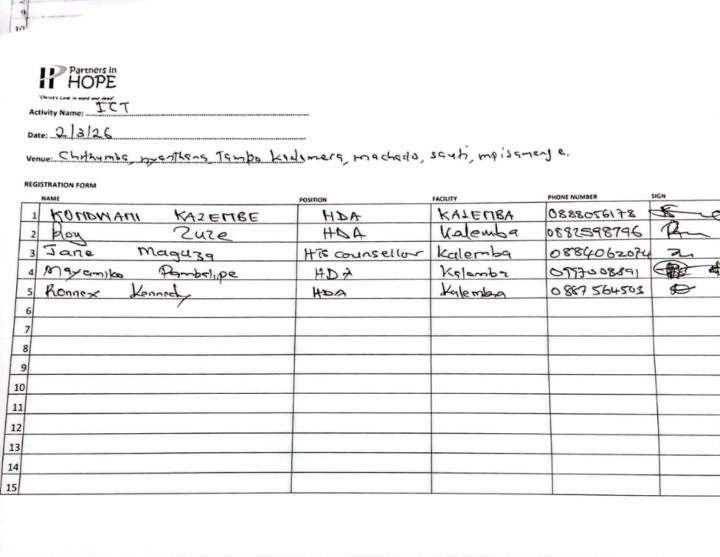 9
10
Partners in
HOPE
Christ's Love in word and deed
Activity Name: ICT
Date: 2/3/26
Venue: Chithumba, Tambo machado, sauti, mpisamanga.
REGISTRATION FORM
NAME POSITION FACILITY PHONE NUMBER SIGN
1 KONDWANI KAZEMBE HDA KALEMBA 0888056178
2 Roy Zuze HDA Kalemba 0882598796
3 Jane Maguza HTS counsellor Kalemba 0884062074
4 Mayamiko HDA Kalemba
5 Ronnex Kennedy HDA Kalemba 0887564503
6
7
8
9
10
11
12
13
14
15